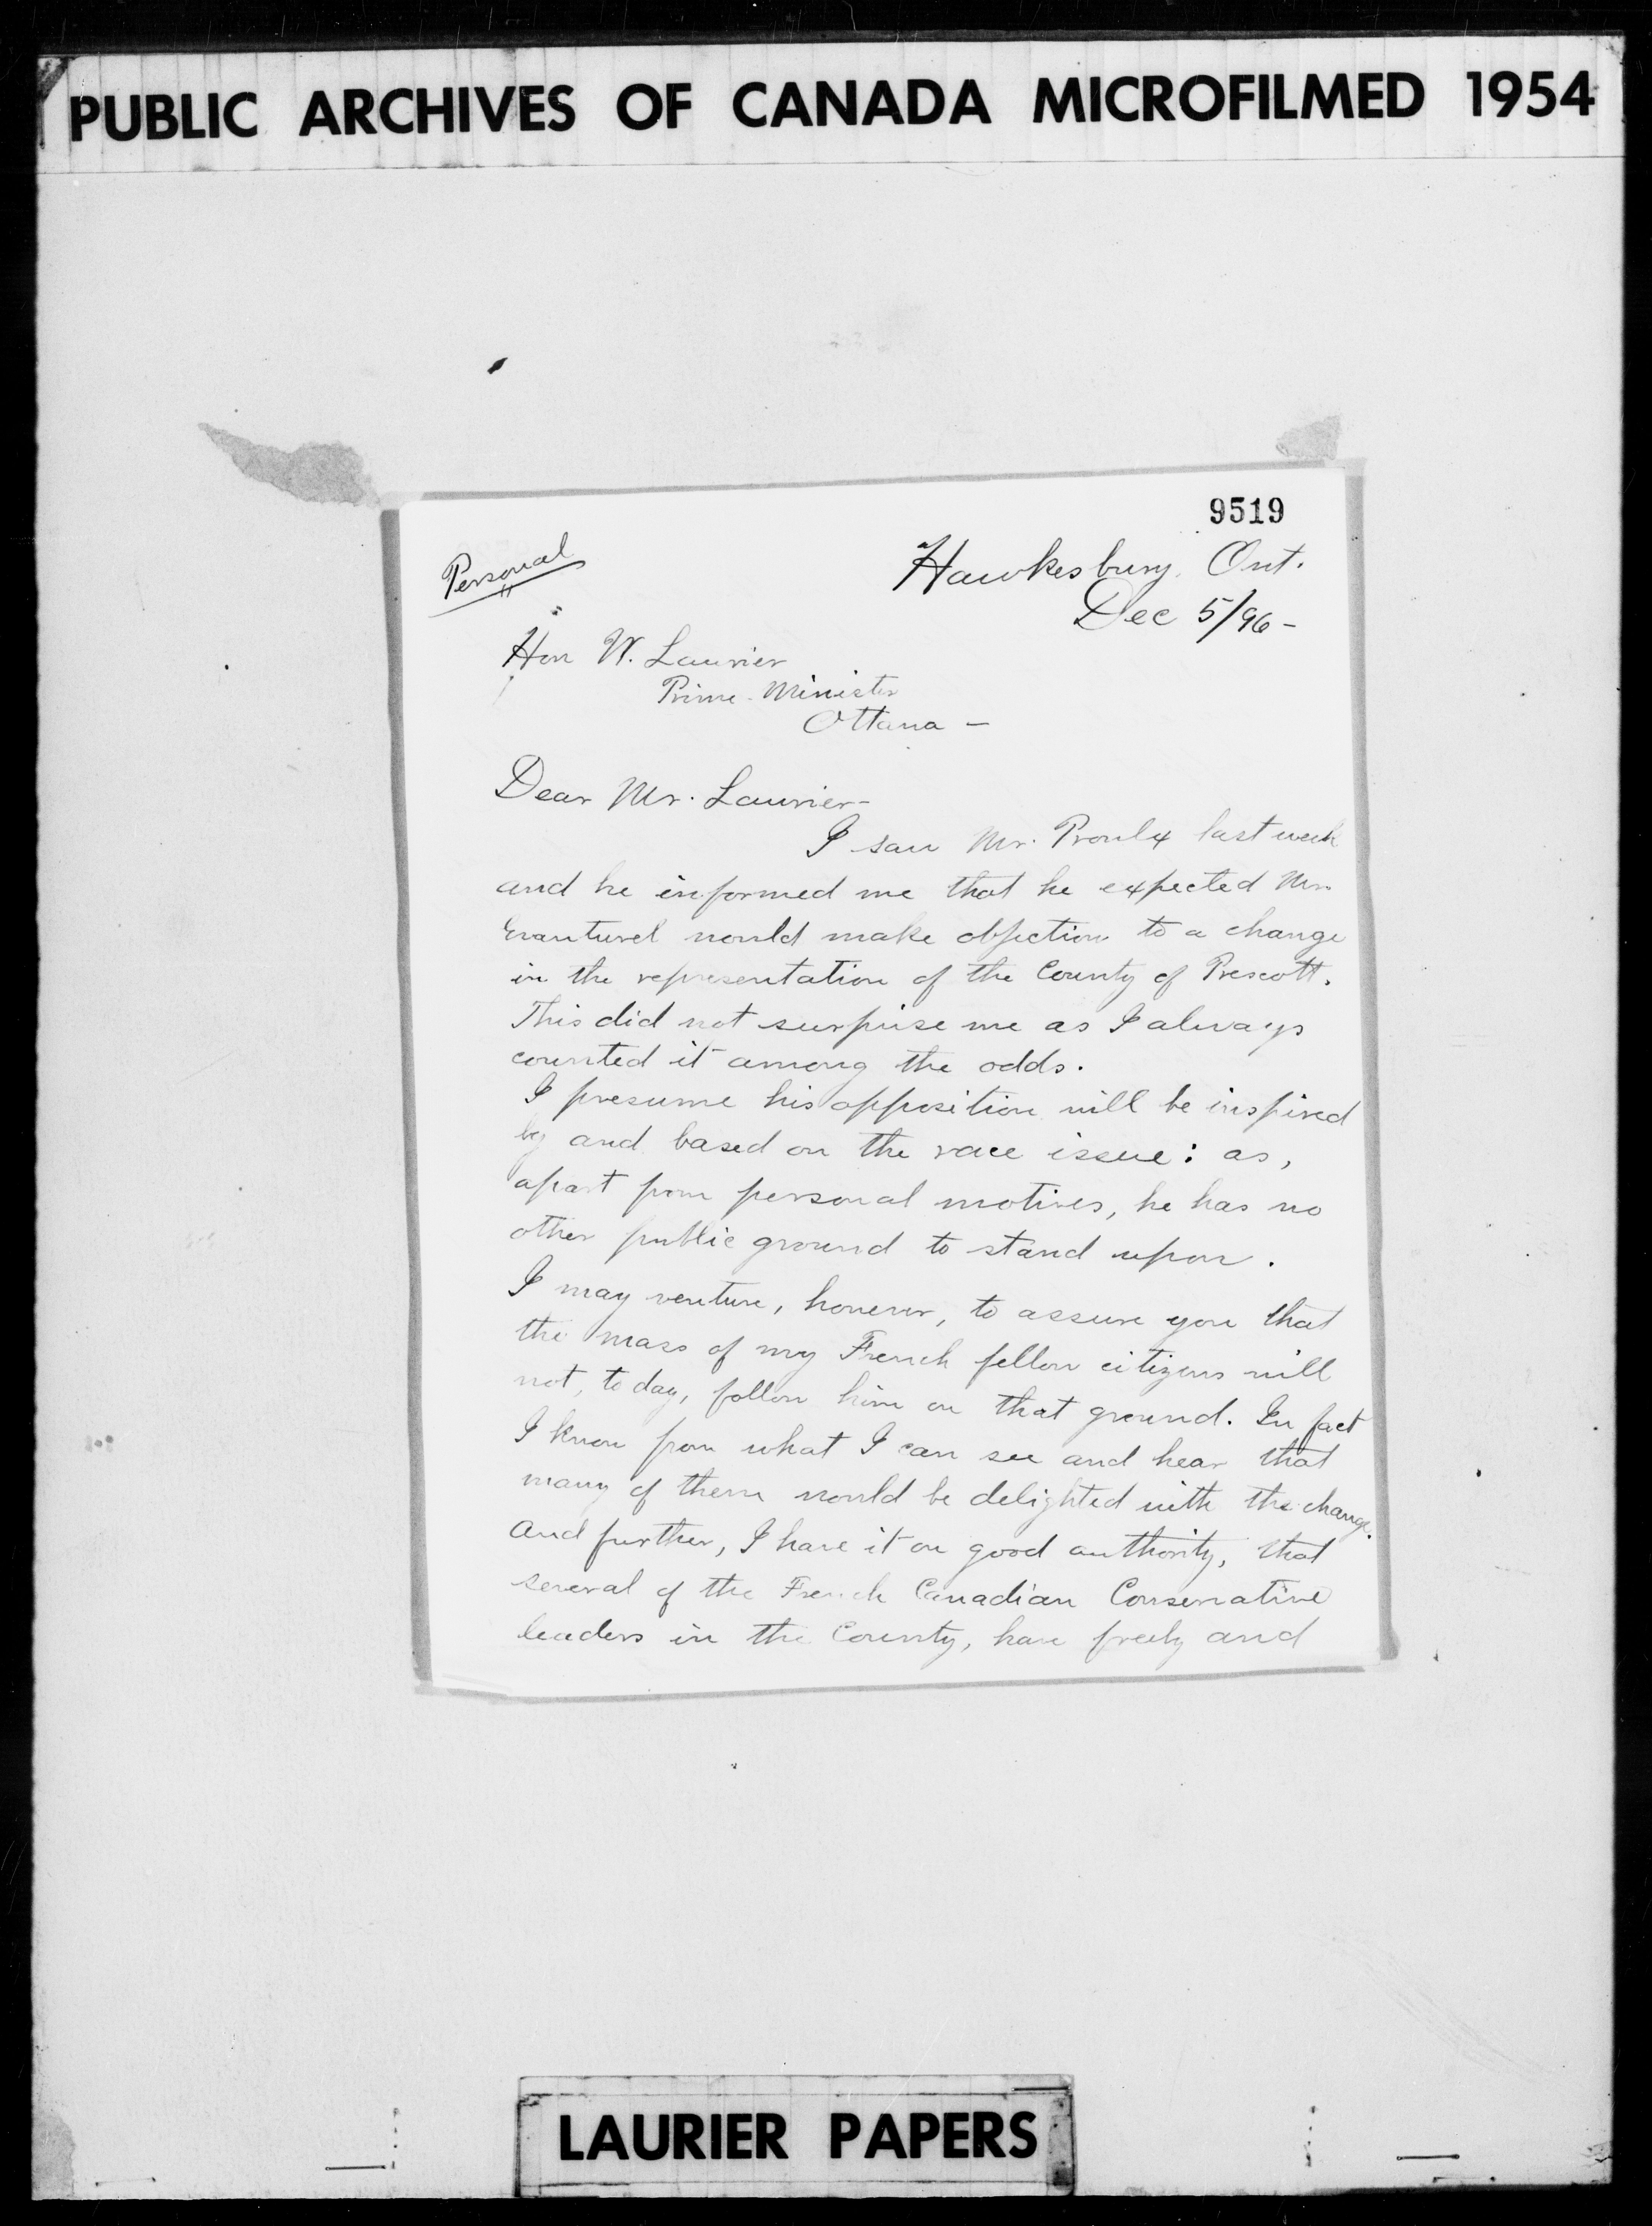 PUBLIC ARCHIVES OF CANADA MICROFILMED 1954
9519
Personal
Hawkesbury, Ont.
Dec 5/96 -
Hon W. Laurier
Prime Minister
Ottawa -
Dear Mr. Laurier -
I saw Mr. Proulx last week
and he informed me that he expected Mr.
Evanturel would make objection to a change
in the representation of the County of Prescott.
This did not surprise me as I always
counted it among the odds.
I presume his opposition will be inspired
by and based on the race issue: as,
apart from personal motives, he has no
other public ground to stand upon.
I may venture, however, to assure you that
the mass of my French fellow citizens will
not, to day, follow him on that ground. In fact
I know from what I can see and hear that
many of them would be delighted with the change.
And further, I have it on good authority, that
several of the French Canadian Conservative
leaders in the County, have freely and
LAURIER PAPERS